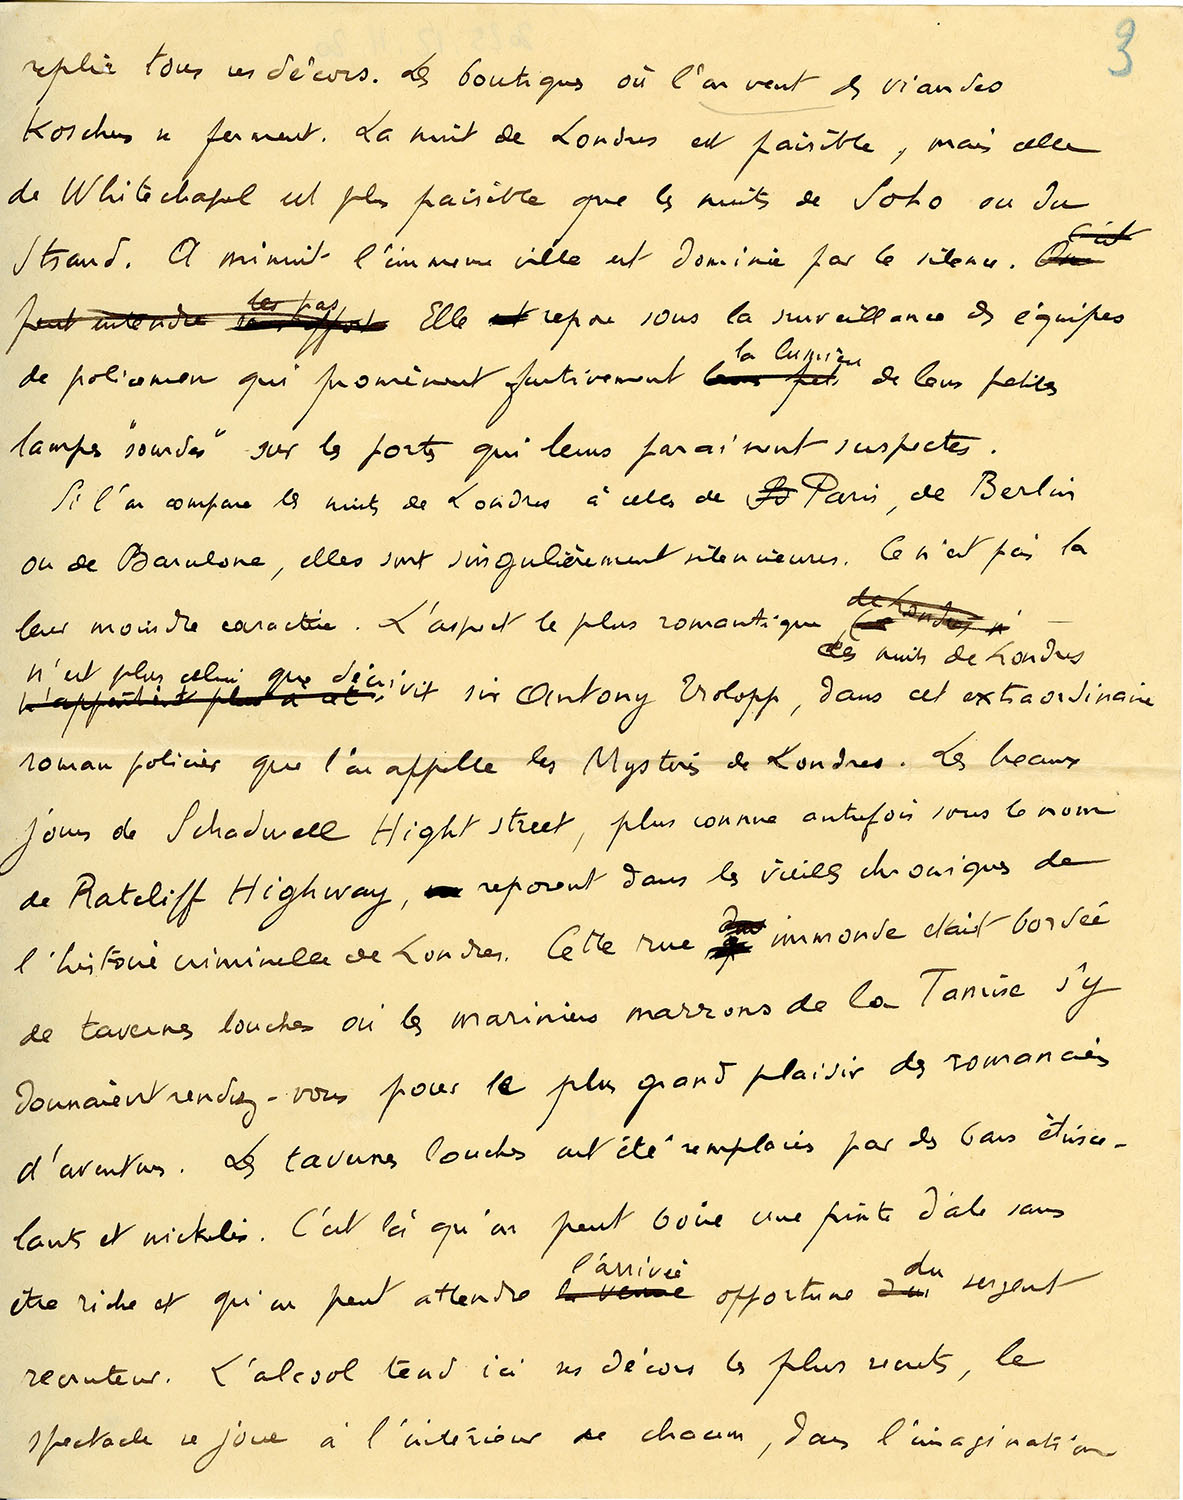 3
replie tous ses décors. Les boutiques où l'on vent des viandes
Koschers se ferment. La nuit de Londres est paisible, mais celle
de Whitechapel est plus paisible que les nuits de Soho ou du
Strand. A minuit l'immense ville est dominée par le silence.
les pas
peut entendre Elle est repose sous la surveillance des équipes
la lumière
de policemen qui promènent furtivement de leurs petites
lampes "sourdes" sur les portes qui leurs paraissent suspectes.
Si l'on compare les nuits de Londres à celles de Paris, de Berlin
ou de Barcelone, elles sont singulièrement silencieuses. Ce n'est pas là
de Londres n'
leur moindre caractère. L'aspect le plus romantique
des nuits de Londres
n'est plus celui que décrivit sir Antony Trolopp, dans cet extraordinaire
n'appartient plus à cet
roman policier que l'on appelle les Mystères de Londres. Les beaux
jours de Schadwell Hight street, plus connue autrefois sous le nom
de Ratcliff Highway, reposent dans les vieilles chroniques de
l'histoire criminelle de Londres. Cette rue immonde était bordée
de tavernes louches où les mariniers marrons de la Tamise s'y
donnaient rendez-vous pour le plus grand plaisir des romanciers
d'aventures. Les tavernes louches ont été remplacées par des bars étince-
lants et nickelés. C'est là qu'on peut boire une pinte d'ale sans
l'arrivée du
être riche et qu'on peut attendre la venue opportune d'un sergent
recruteur. L'alcool tend ici ses décors les plus secrets, le
spectacle se joue à l'intérieur de chacun, dans l'imagination